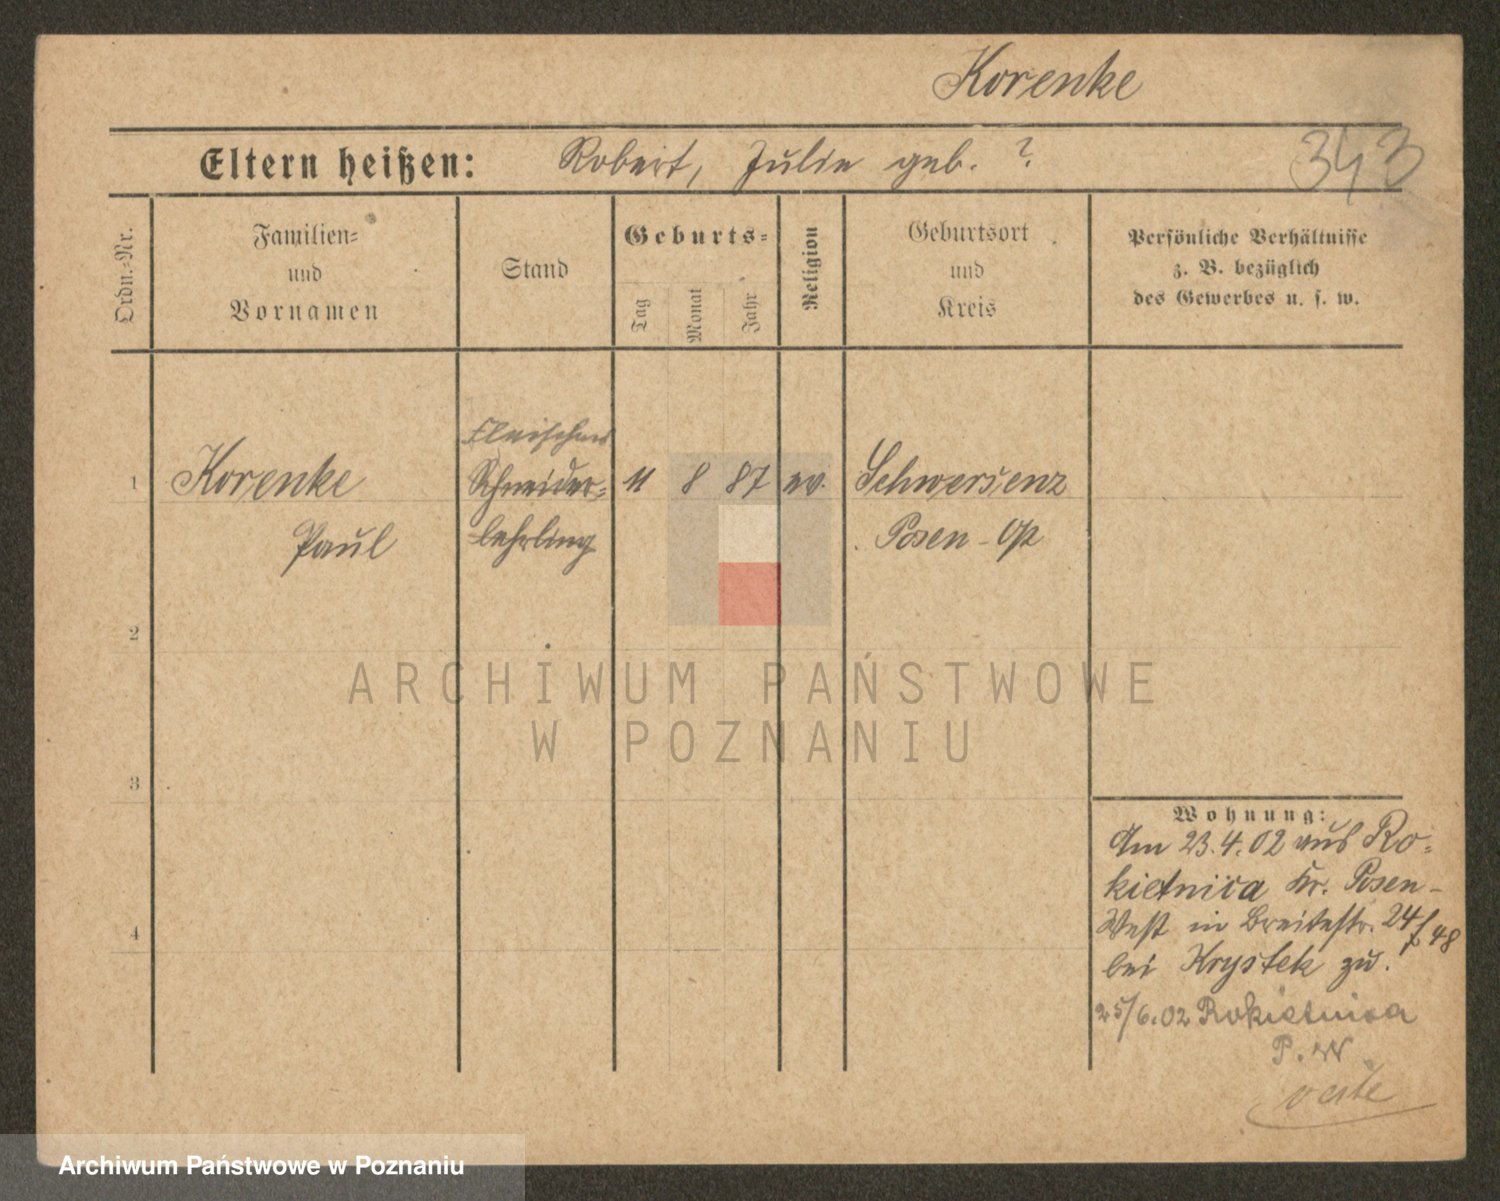 Korenke
Eltern heißen: Robert, Julie geb. ?
343
Ordn.-Nr.
Familien-
und
Vornamen
Stand
Geburts-
Tag
Monat
Jahr
Religion
Geburtsort
und
Kreis
Persönliche Verhältnisse
z. B. bezüglich
des Gewerbes u. s. w.
Fleischer
1 Korenke Schneider- 11 8 87 ev. Schwersenz
Paul lehrling Posen-Op
2
ARCHIWUM PAŃSTWOWE
W POZNANIU
3
4
Wohnung:
Am 23.4.02 aus Ro-
kietnica Kr. Posen-
West in Breitestr. 24/48
bei Krystek zu.
25/6.02 Rokietnica
P. W
Archiwum Państwowe w Poznaniu